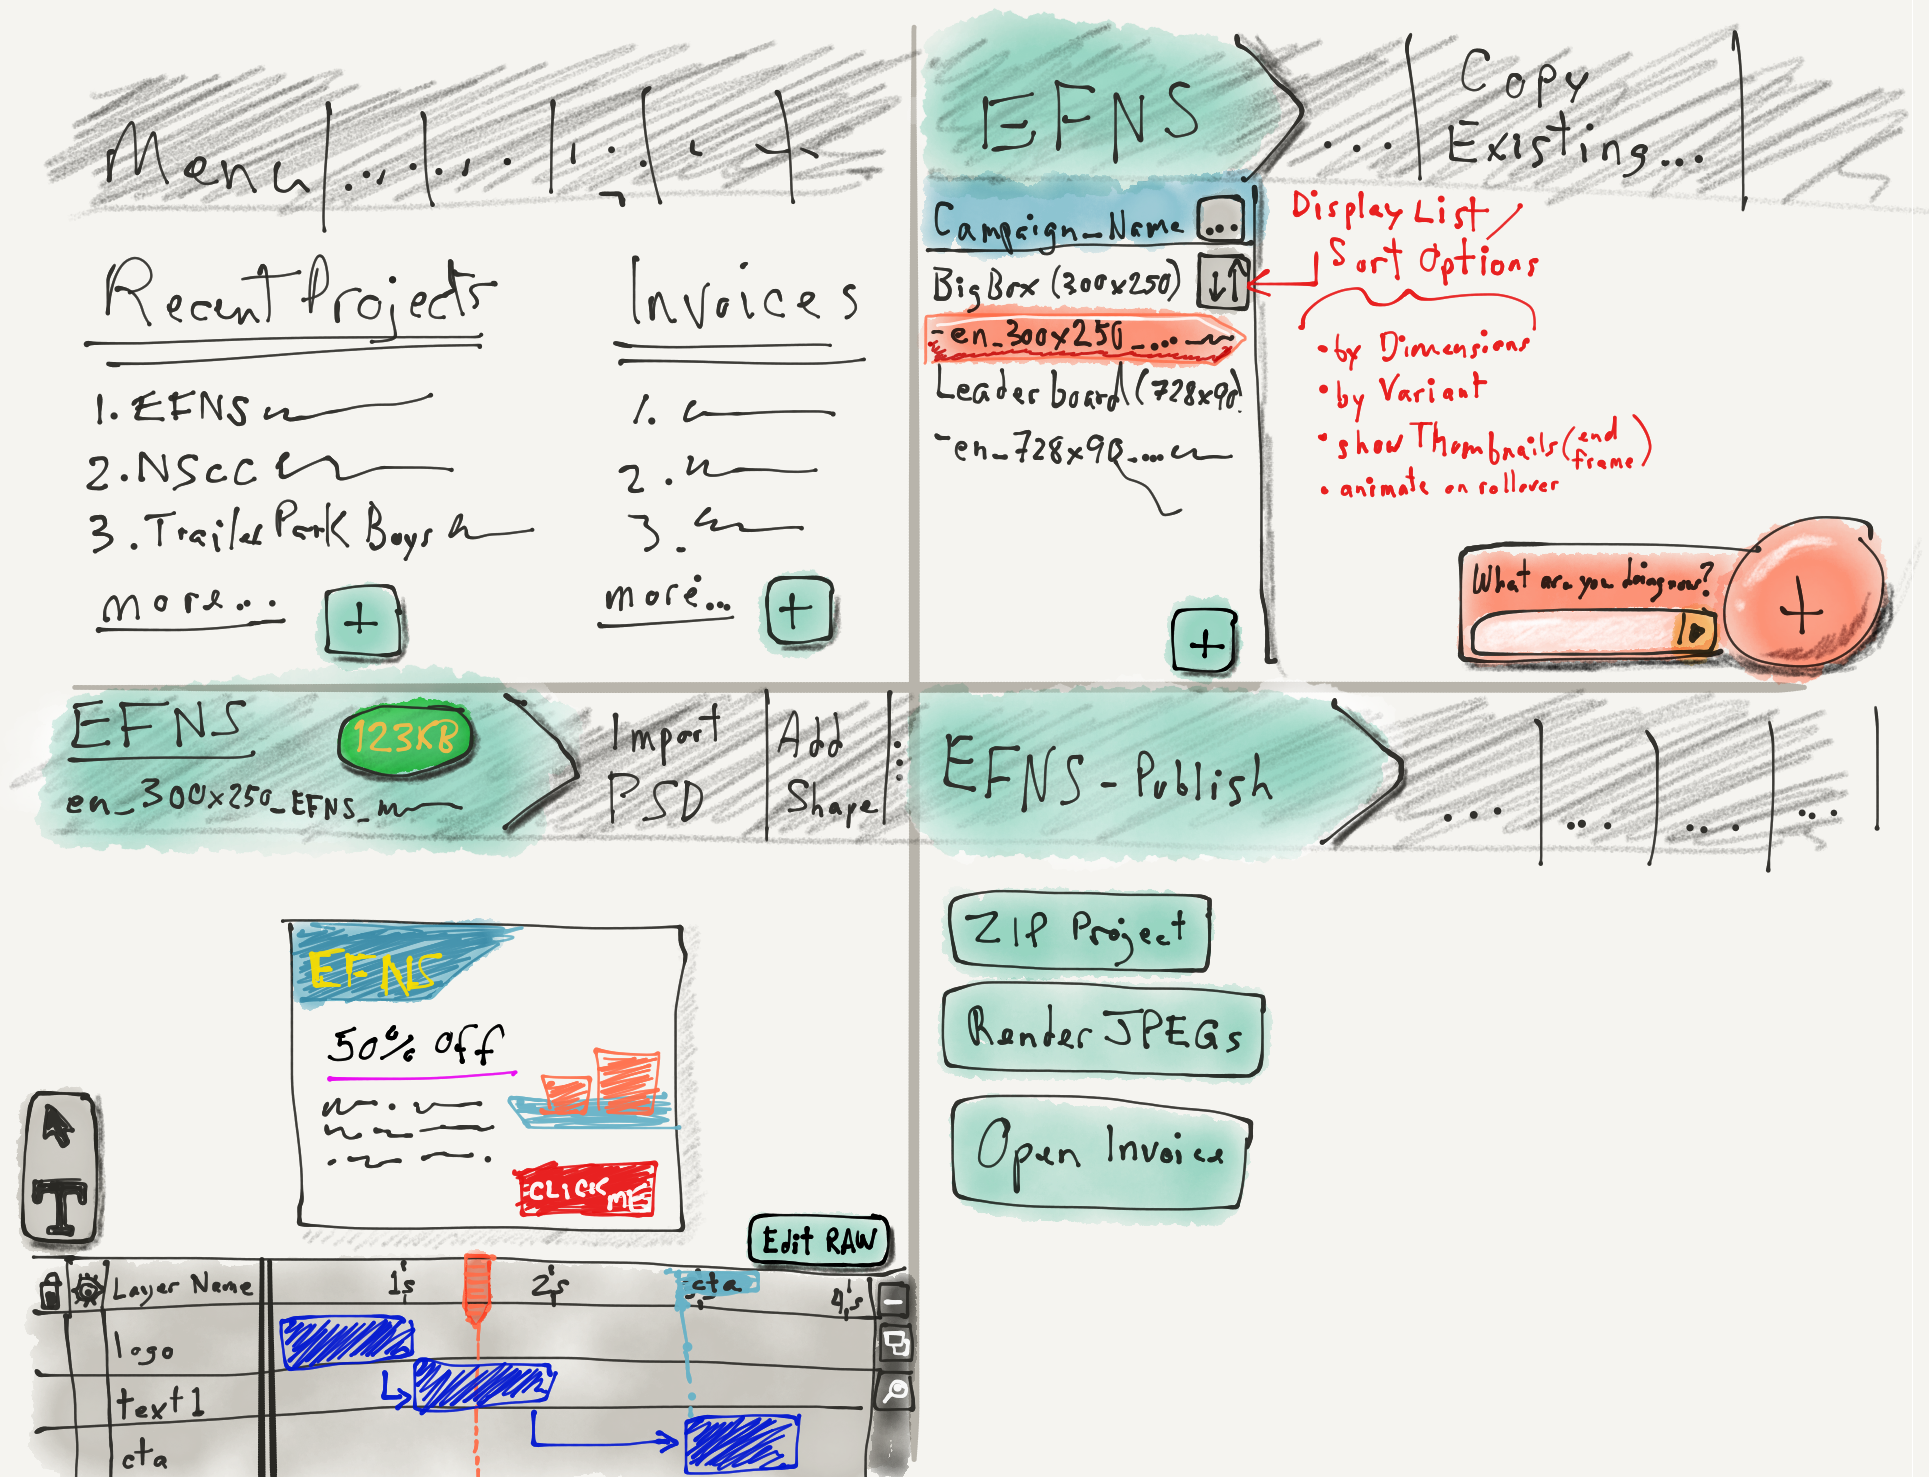 Menu
Recent Projects
1. EFNS
2. NSCC
3. Trailer Park Boys
more...
+
Invoices
1.
2.
3.
more...
+
EFNS
...
Copy
Existing...
Campaign_Name ...
BigBox (300x250)
-en_300x250_...
Leaderboard (728x90)
-en_728x90_...
+
Display List
Sort Options
• by Dimensions
• by Variant
• show Thombnails (end frame)
• animate on rollover
What are you doing now?
+
EFNS
123KB
en_300x250_EFNS_
Import
PSD
Add
Shape
EFNS
50% off
CLICK ME
T
Edit RAW
Layer Name
1s
2s
cta
4s
logo
text1
cta
EFNS - Publish
... ... ... ...
ZIP Project
Render JPEGs
Open Invoice